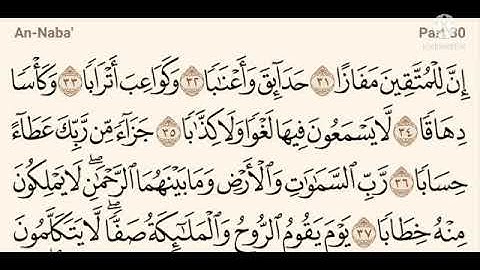 An-Naba' Part 30
إِنَّ لِلْمُتَّقِينَ مَفَازًا ٣١ حَدَآئِقَ وَأَعْنَٰبًا ٣٢ وَكَوَاعِبَ أَتْرَابًا ٣٣ وَكَأْسًا
دِهَاقًا ٣٤ لَّا يَسْمَعُونَ فِيهَا لَغْوًا وَلَا كِذَّٰبًا ٣٥ جَزَآءً مِّن رَّبِّكَ عَطَآءً
حِسَابًا ٣٦ رَّبِّ ٱلسَّمَٰوَٰتِ وَٱلْأَرْضِ وَمَا بَيْنَهُمَا ٱلرَّحْمَٰنِ ۖ لَا يَمْلِكُونَ
مِنْهُ خِطَابًا ٣٧ يَوْمَ يَقُومُ ٱلرُّوحُ وَٱلْمَلَٰٓئِكَةُ صَفًّا ۖ لَّا يَتَكَلَّمُونَ